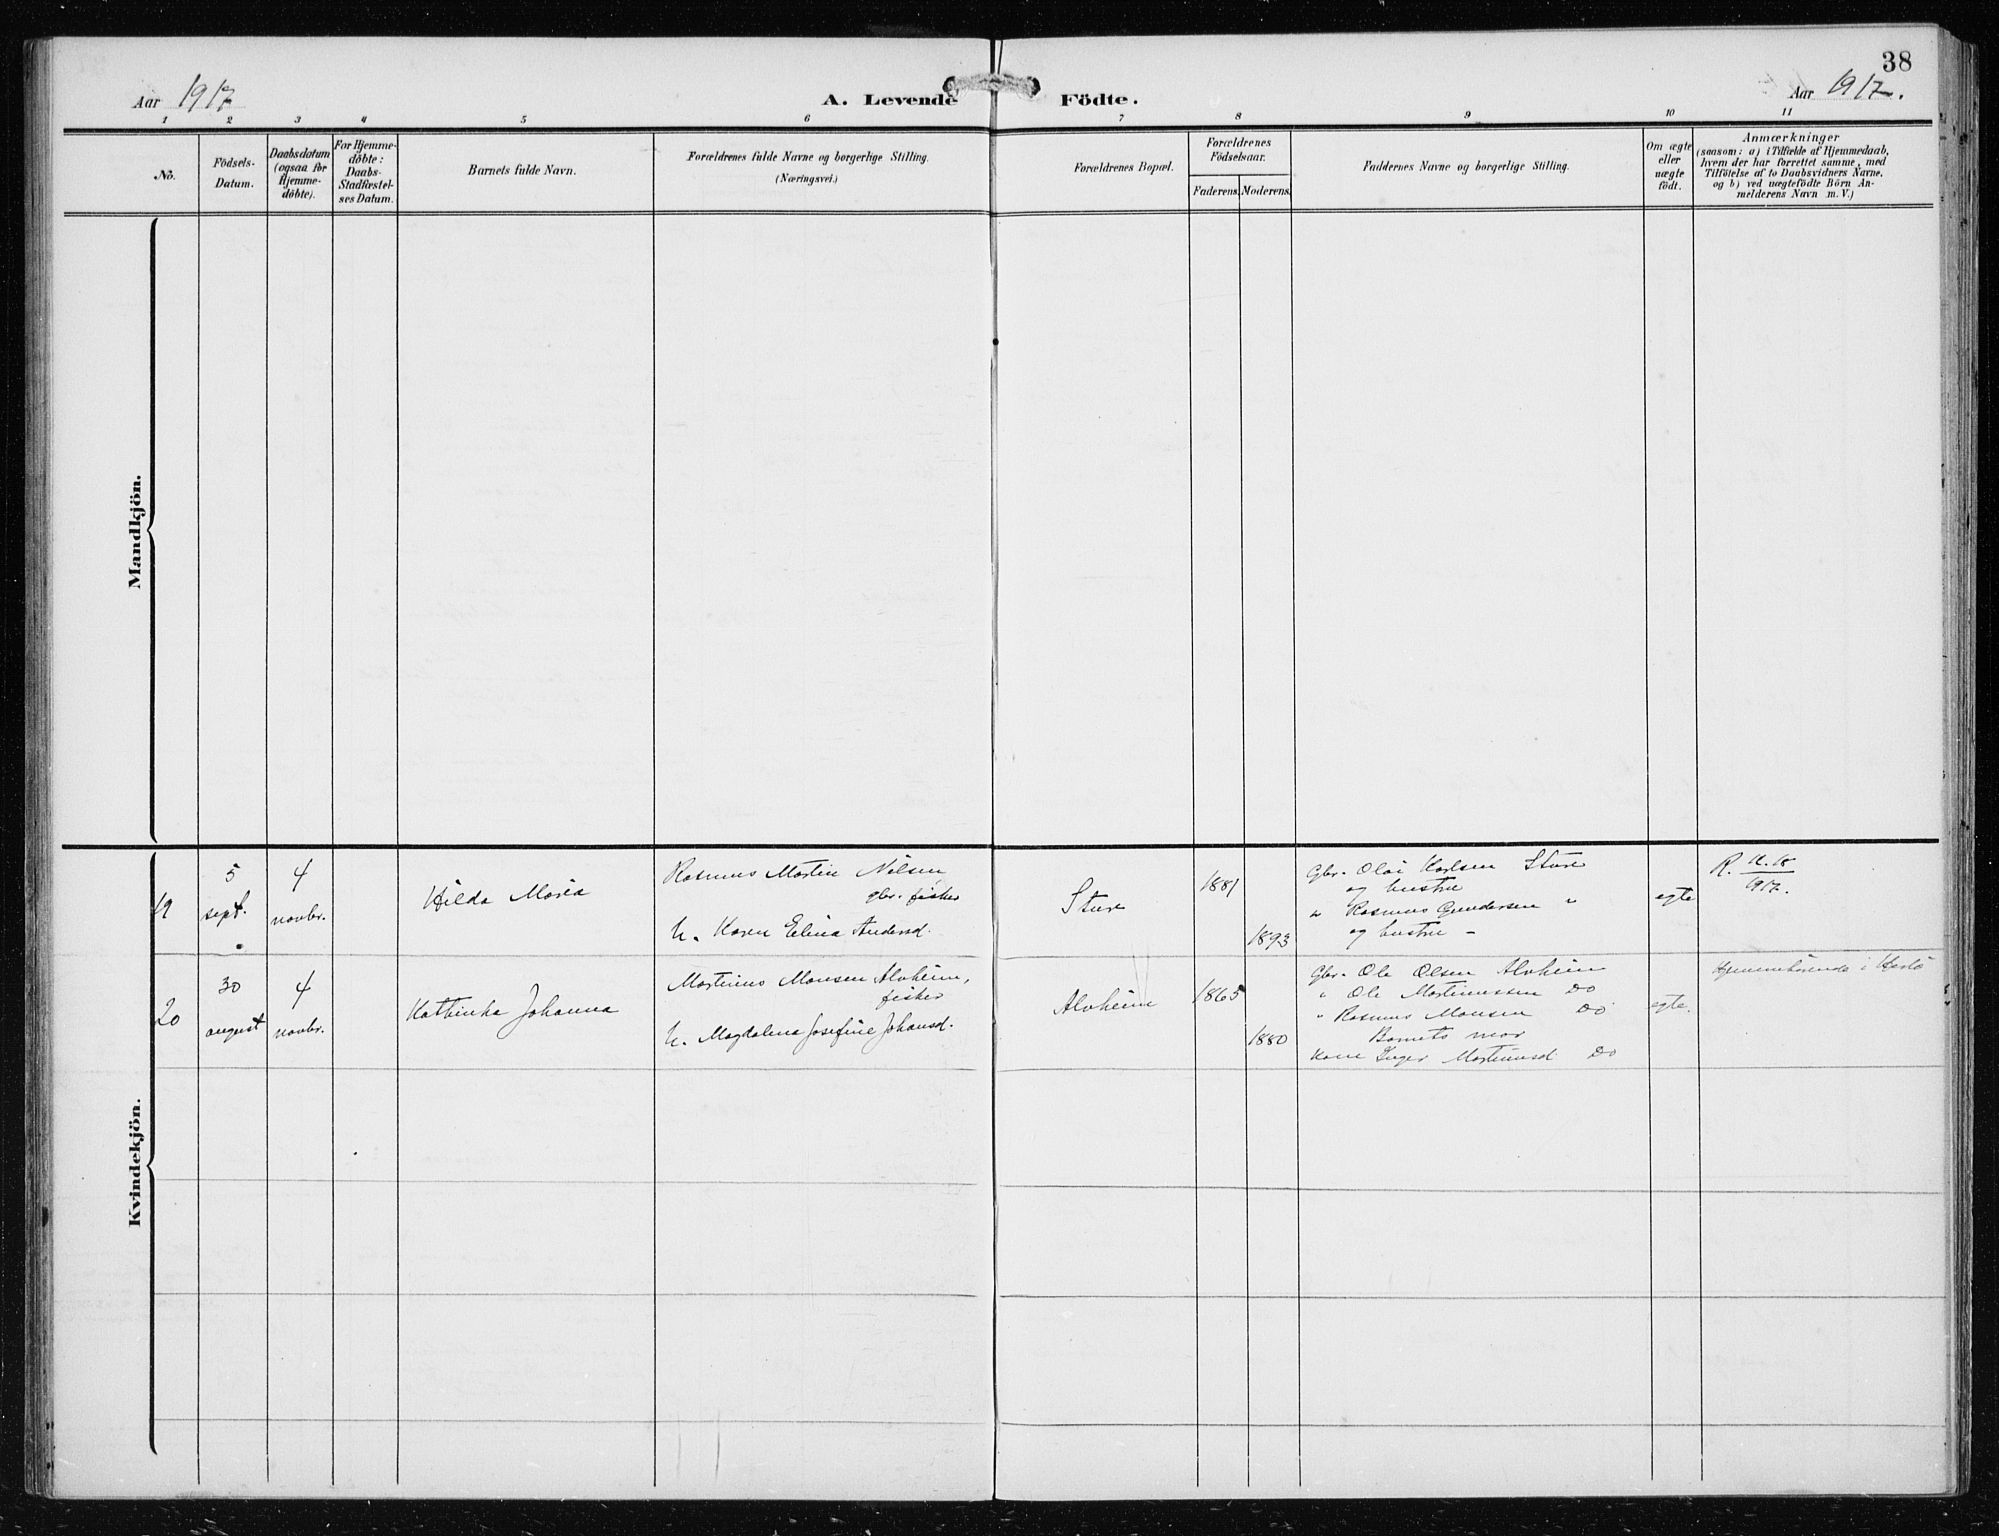 38
Aar 1917
A. Levende Födte.
Aar 1917.
1 2 3 4 5 6 7 8 9 10 11
No.
Födsels-
Datum.
Daabsdatum
(ogsaa for
Hjemme-
döbte).
For Hjemme-
döbte:
Daabs-
Stadfæstel-
ses Datum.
Barnets fulde Navn.
Forældrenes fulde Navne og borgerlige Stilling.
(Næringsvei.)
Forældrenes Bopæl.
Forældrenes
Födselsaar.
Faderens. Moderens.
Faddernes Navne og borgerlige Stilling.
Om ægte
eller
uægte
födt.
Anmærkninger
(saasom: a) i Tilfælde af Hjemmedaab,
hvem der har forrettet samme, med
Tilföielse af to Daabsvidners Navne,
og b) ved uægtefödte Börn An-
melderens Navn m. V.)
Mandkjön.
Kvindekjön.
19
5
sept.
4
novbr.
Hilda Maria
Rasmus Martin Nilsen,
gbr. fisker
h. Karen Elina Andersd.
Sture
1881
1893
Gbr. Olai Karlsen Sture
og hustru
" Rasmus Gundersen "
og hustru -
egte
R.
1917.
20
30
august
4
novbr.
Kathinka Johanna
Martinus Monsen Alvheim,
fisker
h. Magdalena Josefine Johansd.
Alvheim
1865
1880
Gbr. Ole Olsen Alvheim
" Ole Martinussen Do
" Rasmus Monsen Do
Barnets mor
Kone Inger Martinusd. Do
egte.
Hjemmehörende i Herlö